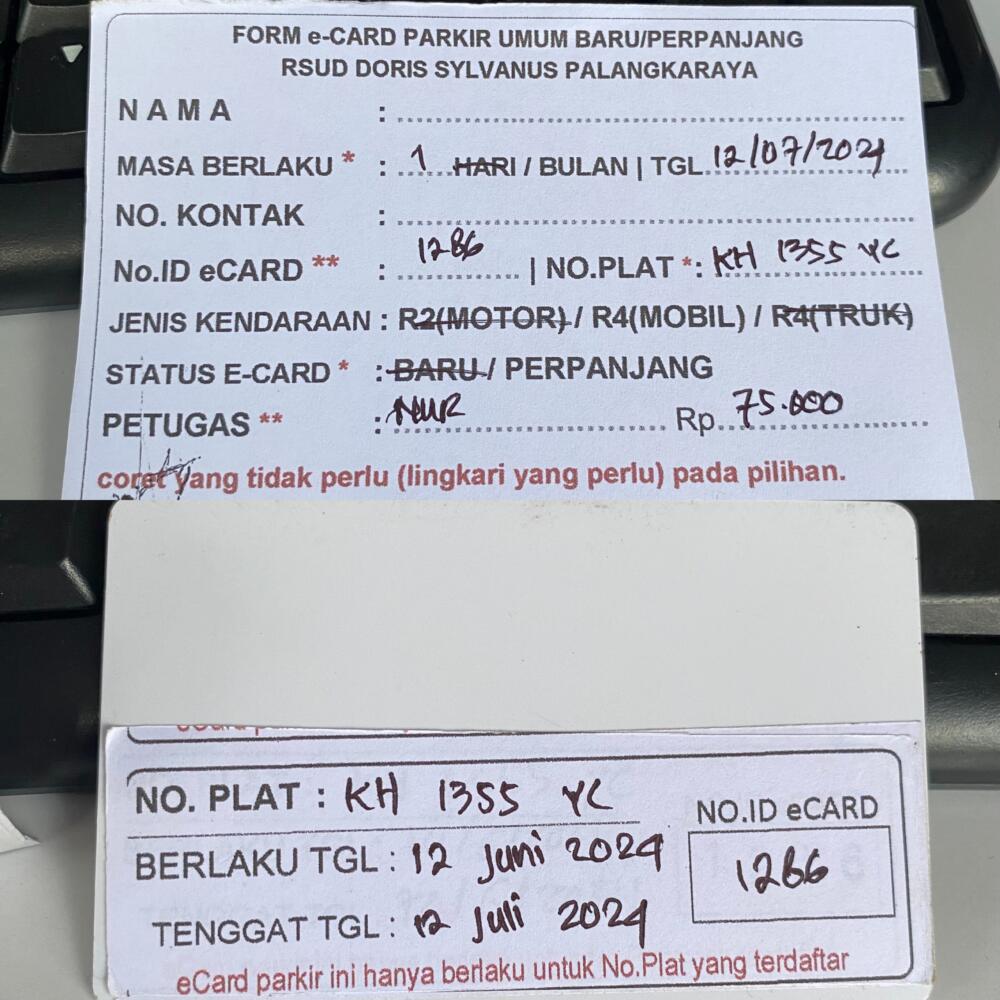 FORM e-CARD PARKIR UMUM BARU/PERPANJANG
RSUD DORIS SYLVANUS PALANGKARAYA
NAMA :
MASA BERLAKU * : 1 HARI / BULAN | TGL. 12/07/2024
NO. KONTAK :
No.ID eCARD ** : 1286 | NO.PLAT *: KH 1355 YC
JENIS KENDARAAN : R2(MOTOR) / R4(MOBIL) / R4(TRUK)
STATUS E-CARD * : BARU / PERPANJANG
PETUGAS ** : NUR Rp. 75.000
coret yang tidak perlu (lingkari yang perlu) pada pilihan.
NO. PLAT : KH 1355 YC
NO.ID eCARD
BERLAKU TGL : 12 Juni 2024
1286
TENGGAT TGL : 12 Juli 2024
eCard parkir ini hanya berlaku untuk No.Plat yang terdaftar